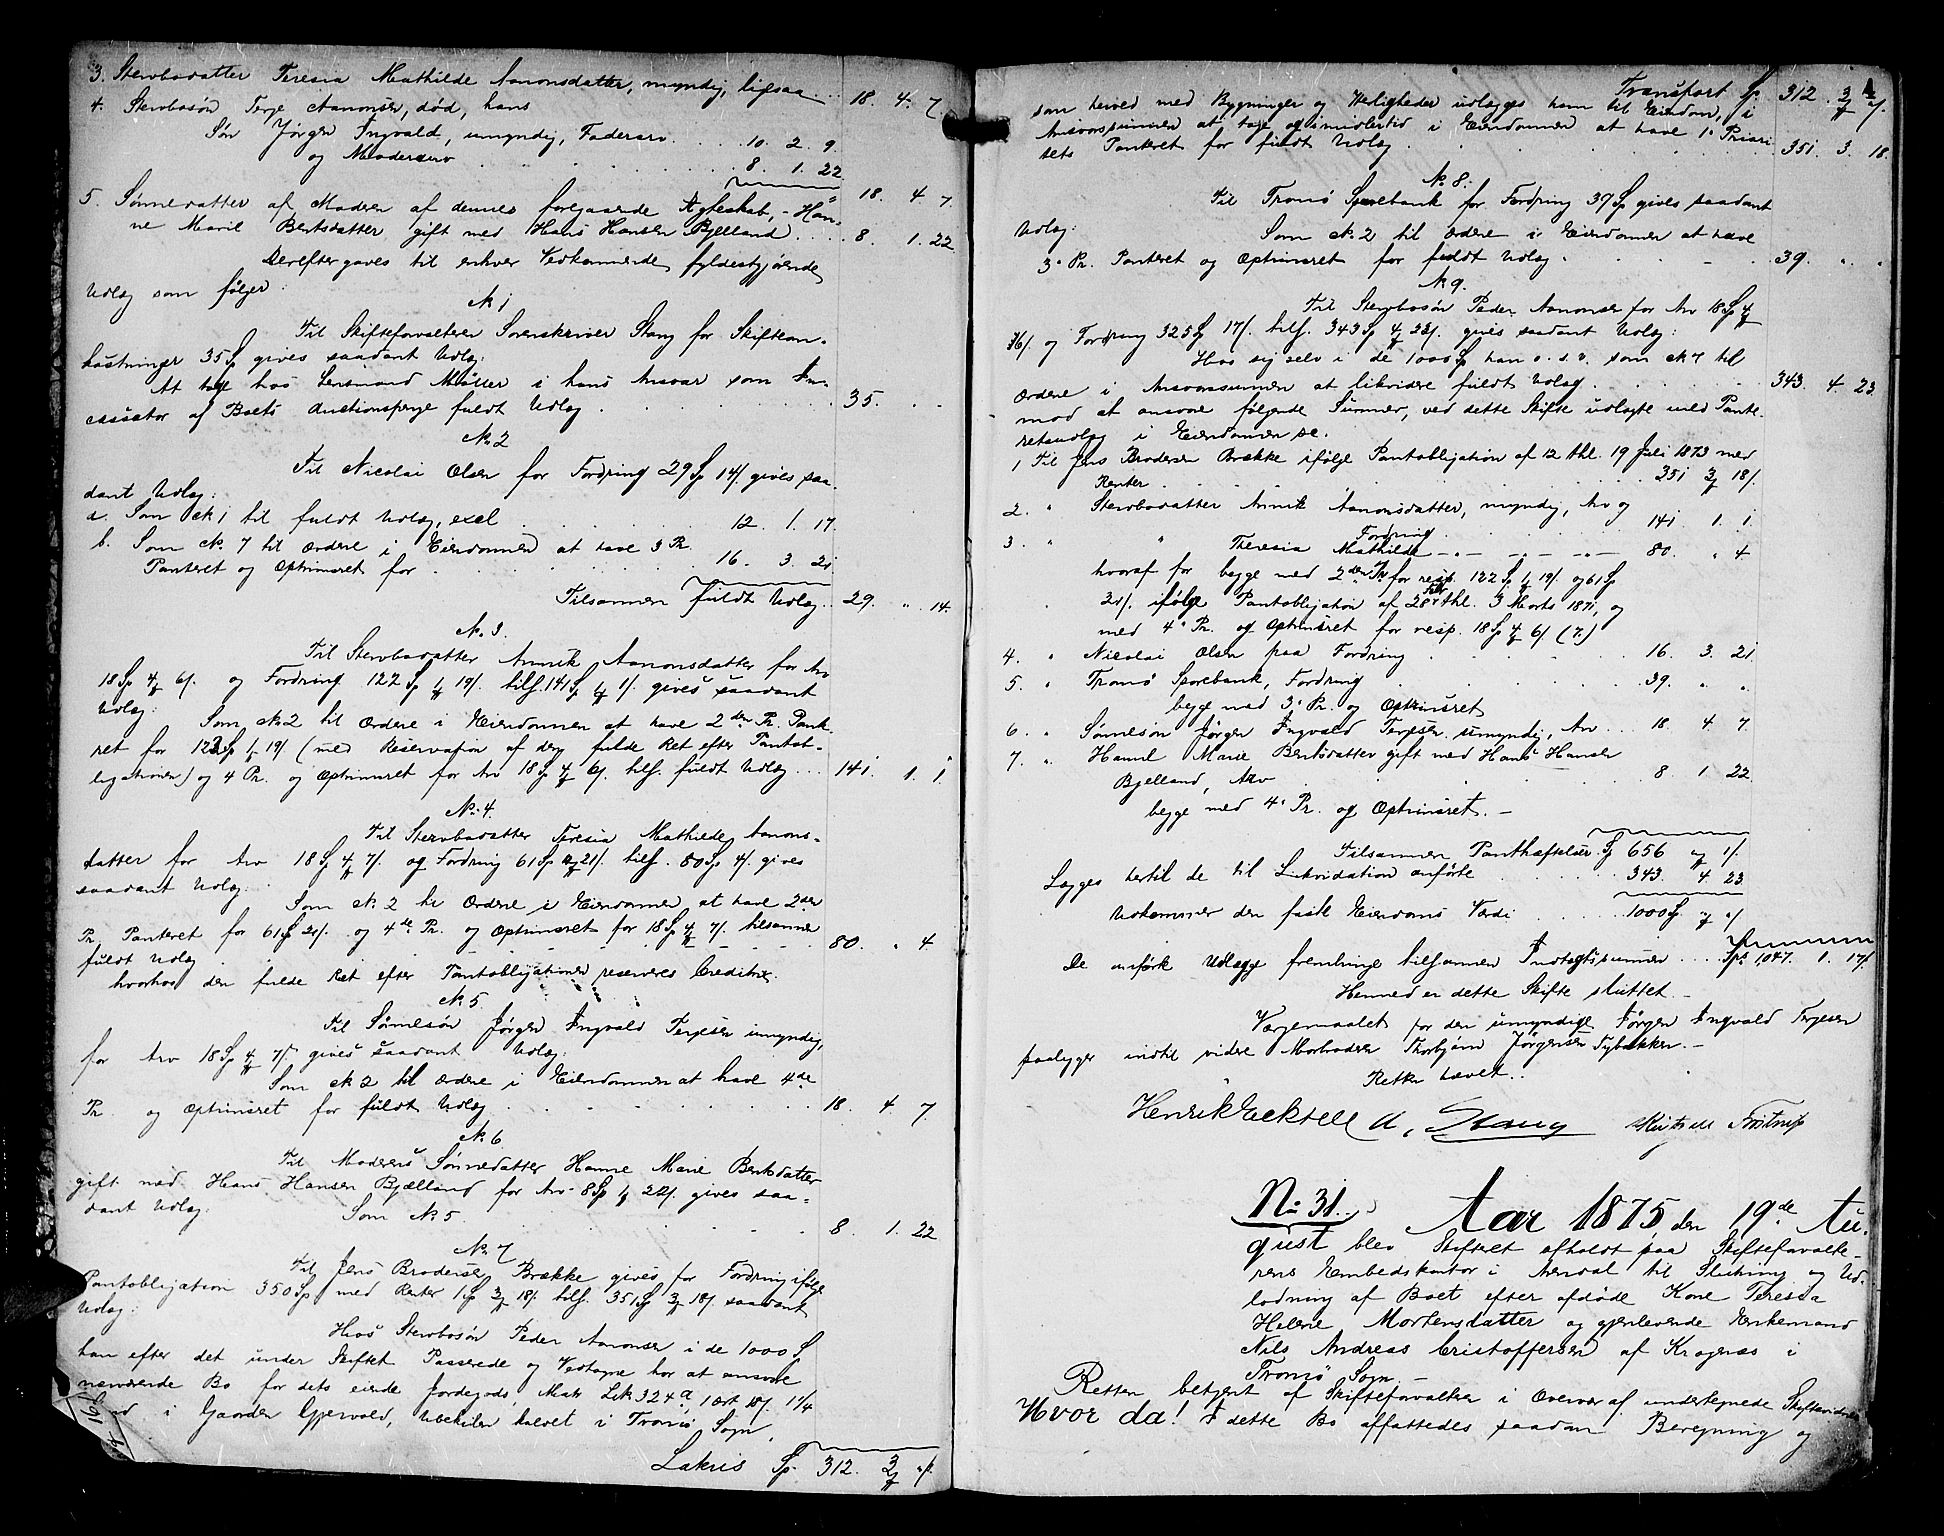 3. Stervbodatter Teresia Mathilde Aanonsdatter, myndig, ligesaa . . 18. 4. 7.
4. Stervbosøn Terje Aanonsen, død, hans
Søn Jørgen Ingvald, umyndig, Fadersarv . . . . 10. 2. 9
og Modersarv . . . . . . 8. 1. 22
18. 4. 7
5. Sønnedatter af Moderen af dennes foregaaende Ægteskab, - Han-
ne Marie Bentsdatter gift med Hans Hansen Bjelland . . . . 8. 1. 22
Derefter gaves til enhver Vedkommende fyldestgjørende
Udlæg som følger:
No 1
Til Skifteforvalteren Sorenskriver Stang for Skifteom-
kostninger 35 Sp gives saadant Udlæg:
At tage hos Lensmand Møller i hans Ansvar som In-
cassator af Boets Auctionspenge fuldt Udlæg . . . . . 35. . -
No. 2
Til Nicolai Olsen for Fordring 29 Sp 14/. gives saa-
dant Udlæg:
a. Som No 1 til fuldt Udlæg, . . . . . 12. 1. 17.
b. Som No. 7 til Ordene i Eiendommen at have 3 Pr.
Panteret og Optrinsret for . . . . . 16. 3. 21
Tilsammen fuldt Udlæg . . 29. " . 14.
No. 3.
Til Stervbodatter Annik Aanonsdatter for Arv
18 Sp 4 # 6/. og Fordring 122 Sp 1 # 19/. tils. 141 Sp 1 # 1/. gives saadant
Udlæg:
Som No. 2 til Ordene i Eiendommen at have 2den Pr. Pant-
ret for 122 Sp 1 # 19/ (med Reservation af den fulde Ret efter Pantob-
ligationen) og 4 Pr. og Optrinsret for Arv 18 Sp 4 # 6/. tils. fuldt Udlæg . . . 141. 1. 1
No. 4.
Til Stervbodatter Teresia Mathilde Aanons-
datter for Arv 18 Sp 4 # 7/. og Fordring 61 Sp " # 21/. tils. 80 Sp 4/. gives
saadant Udlæg:
Som No. 2 til Ordene i Eiendommen at have 2den
Pr. Panteret for 61 Sp 21/. og 4de Pr. og Optrinsret for 18 Sp 4 # 7/. tilsammen
fuldt Udlæg . . . . . 80. " 4.
hvorhos den fulde Ret efter Pantobligationen reserveres Creditrix.
No. 5
Til Sønnesøn Jørgen Ingvald Terjesen umyndig,
for Arv 18 Sp 4 # 7/. gives saadant Udlæg:
Som No 2 til Ordene i Eiendommen at have 4de
Pr. og Optrinsret for fuldt Udlæg . . . . . 18. 4. 7
No. 6
Til Moderens Sønnedatter Hanne Marie Bentsdatter
gift med Hans Hansen Bjælland for Arv 8 Sp 1 # 22/. gives saa-
dant Udlæg:
Som No. 5 . . . . . 8. 1. 22
No. 7
Til Jens Brodersen Brække gives for Fordring ifølge
Pantobligation 350 Sp med Renter 1 Sp 3 # 18/. tils. 351 Sp 3 # 18/. saadant
Udlæg:
Hos Stervbosøn Peder Aanonsen i de 1000 Sp
han efter det under Skiftet Passerede og Vedtagne har at ansvare
nærværende Bo for dets eiende Jordegods, Matr. Lnr 324 a, 1 Ort 18/. 1 1/4
i Gaarden Gjervold, kaldet i Tromø Sogn,
Lateris Sp. 312. 3 # "/.
Transport Sp. 312. 3 # "/.
som herved med Bygninger og Herligheder udlægges ham til Eiendom, i
Ansvarssummen at tage og imidlertid i Eiendommen at have 1 Priori-
tets Panteret for fuldt Udlæg . . . . . 351. 3. 18.
No. 8.
Til Tromø Sparebank for Fordring 39 Sp gives saadant
Udlæg:
Som No. 2 til Ordene i Eiendommen at have
3 Pr. Panteret og Optrinsret for fuldt Udlæg . . . . 39. " "
No 9.
Til Stervbosøn Peder Aanonsen for Arv 18 Sp 4 #
6/. og Fordring 325 Sp 17/. tils. 343 Sp 4 # 23/. gives saadant Udlæg:
Hos sig selv i de 1000 Sp han o. s. v. som No 7 til
Ordene i Ansvarssummen at likvidere fuldt Udlæg . . . . 343. 4. 23.
mod at ansvare følgende Summer, ved dette Skifte udlagte med Pante-
retsudlæg i Eiendommen se.
1 Til Jens Brodersen Brække ifølge Pantobligation af 12 thl. 19 Juli 1873 med
Renter . . . . . 351 3 # 18/.
2. " Stervbodatter Annik Aanonsdatter, myndig, Arv og
Fordring . . . . 141. 1. 1.
3. " " Theresia Mathilde -"- -"- -"- 80. " 4
hvoraf for begge med 2den Pr for resp. 122 Sp 1 # 19/. og 61 Sp
21/. ifølge Pantobligation af 28 thl. 3 Marts 1871, og
med 4 Pr. og Optrinsret for resp. 18 Sp 4 # 6/. (7.)
4. " Nicolai Olsen paa Fordring . . . . 16. 3. 21
5. " Tromø Sparebank, Fordring . . . . 39. " "
begge med 3 Pr. og Optrinsret
6. " Sønnesøn Jørgen Ingvald Terjesen umyndig, Arv . . 18. 4 7
7. " Hanne Marie Bentsdatter gift med Hans Hansen
Bjelland, Arv . . . . 8. 1. 22.
begge med 4 Pr. og Optrinsret. -
Tilsammen Panthæftelser Sp 656 " # 1/.
Lægges hertil de til Likvidation anførte . . . . 343. 4. 23.
Udkommer den faste Eiendoms Værdi . . . . 1000 Sp. " # "/.
De anførte Udlægge frembringe tilsammen Indtægtssummen . . . Spd 1047. 1. 17/.
Hermed er dette Skifte sluttet. -
Værgemaalet for den umyndige Jørgen Ingvald Terjesen
paaligger indtil videre Morbroderen Thorbjørn Jørgensen Sybækken. -
Retten hævet.
Stang Frostrup
No 31. Aar 1875, den 19de Au-
gust blev Skifteret afholdt paa Skifteforvalte-
rens Embedskontor i Arendal til Slutning og Ud-
lodning af Boet efter afdøde Kone Teresia
Helene Mortensdatter og gjenlevende Enkemand
Nils Andreas Cristoffersen af Kragenæs i
Tromø Sogn. -
Retten betjent af Skifteforvalteren i Overvær af undertegnede Skiftevidner.
Hvor da! I dette Bo affattedes saadan Beregning og